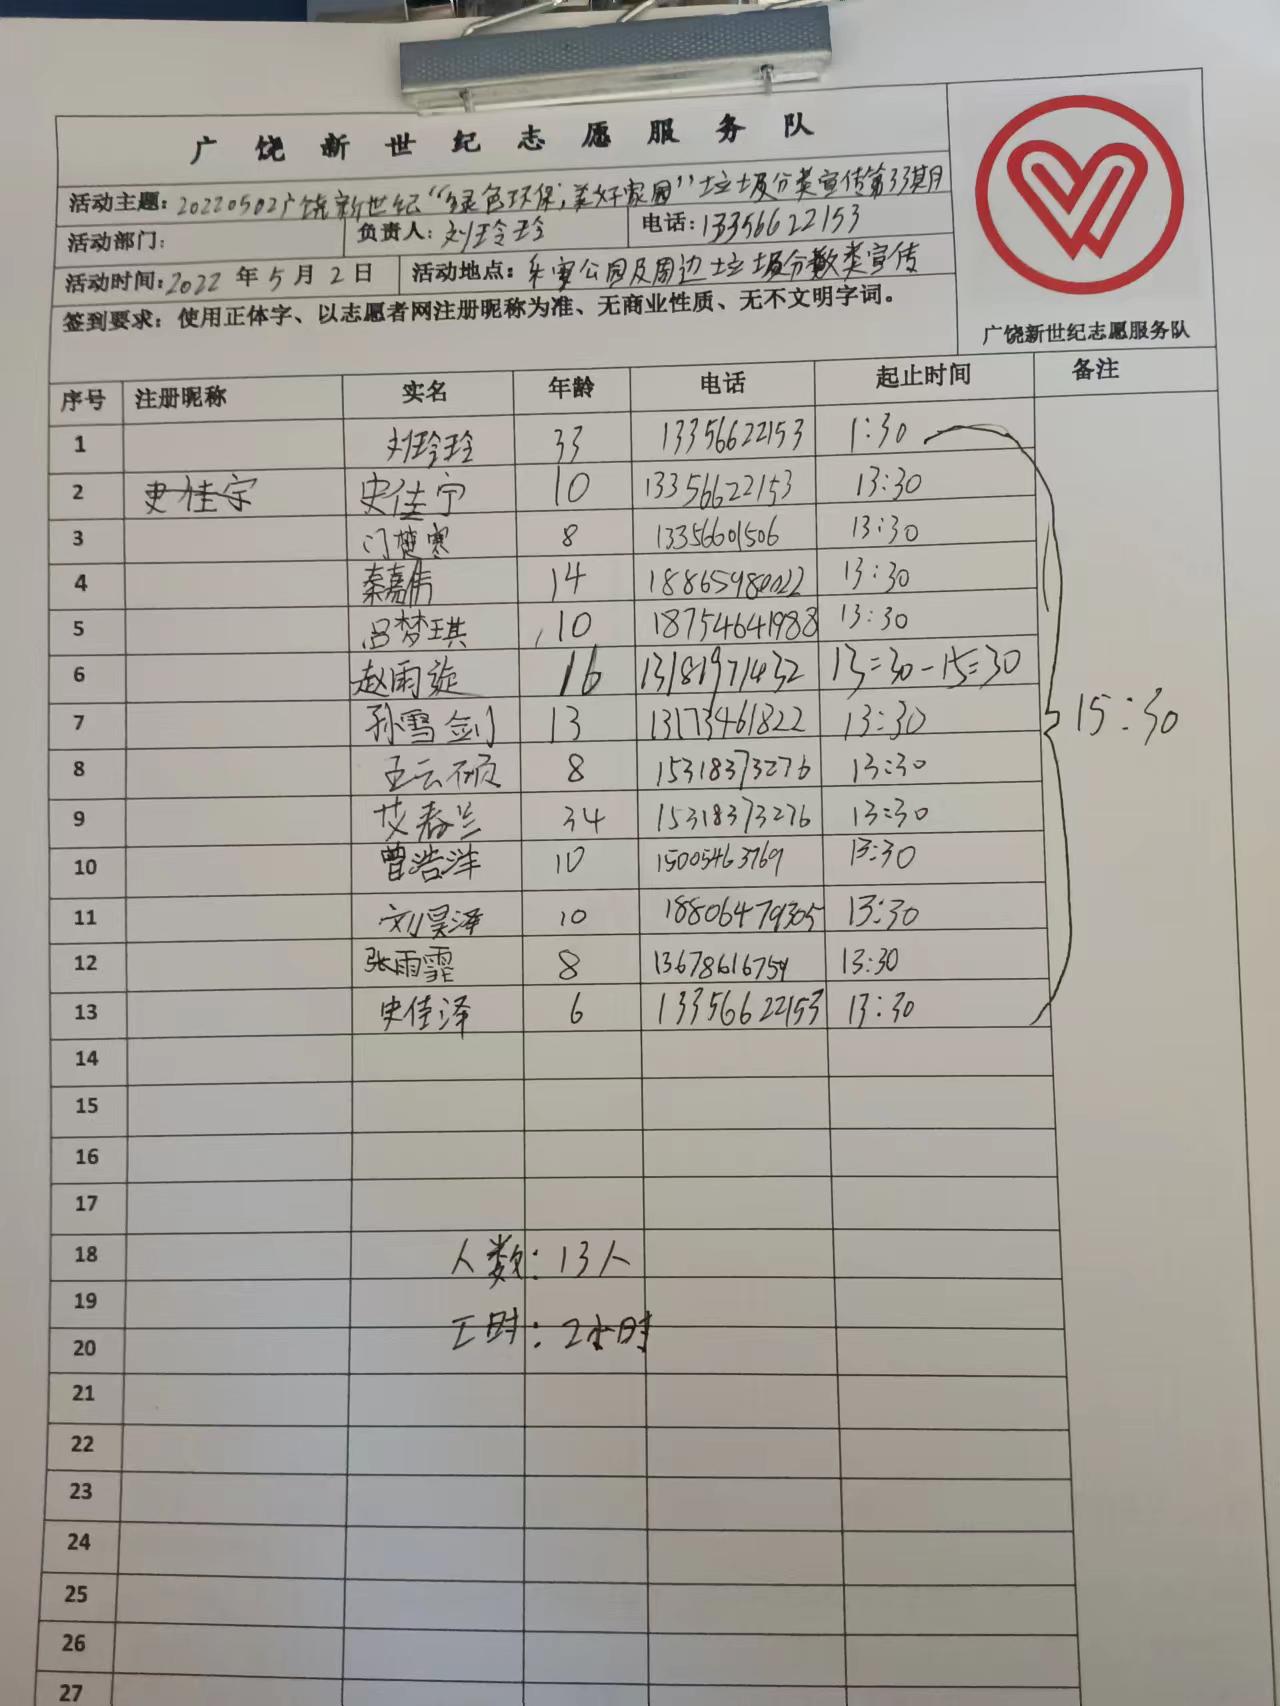 广饶新世纪志愿服务队
活动主题：20220502广饶新世纪“绿色环保,美好家园”垃圾分类宣传第33期
活动部门： 负责人：刘玲玲 电话：13356622153
活动时间：2022年5月2日 活动地点：乐安公园及周边垃圾分类宣传
签到要求：使用正体字、以志愿者网注册昵称为准、无商业性质、无不文明字词。
广饶新世纪志愿服务队
序号 注册昵称 实名 年龄 电话 起止时间 备注
1 刘玲玲 33 13356622153 1:30
2 史佳宁 史佳宁 10 13356622153 13:30
3 门楚寒 8 13356601506 13:30
4 秦嘉伟 14 18865980022 13:30
5 吕梦琪 10 18754641988 13:30
6 赵雨旋 16 13181971432 13:30-15:30
7 孙雪剑 13 13173461822 13:30
15:30
8 王云硕 8 15318373276 13:30
9 艾春兰 34 15318373276 13:30
10 曹浩洋 10 15005463769 13:30
11 刘昊泽 10 18806479305 13:30
12 张雨霏 8 13678616759 13:30
13 史佳泽 6 13356622153 13:30
14
15
16
17
18 人数：13人
19
20 工时：2小时
21
22
23
24
25
26
27